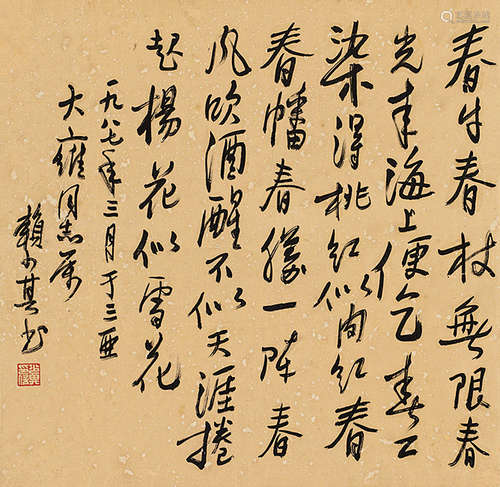 春牛春杖無限春
光来海上便乞春工
染得桃红似肉红春
春幡春勝一陣春
风吹酒醒不似天涯捲
起楊花似雪花
一九八七年三月于三亜
大維同志属
賴少其书